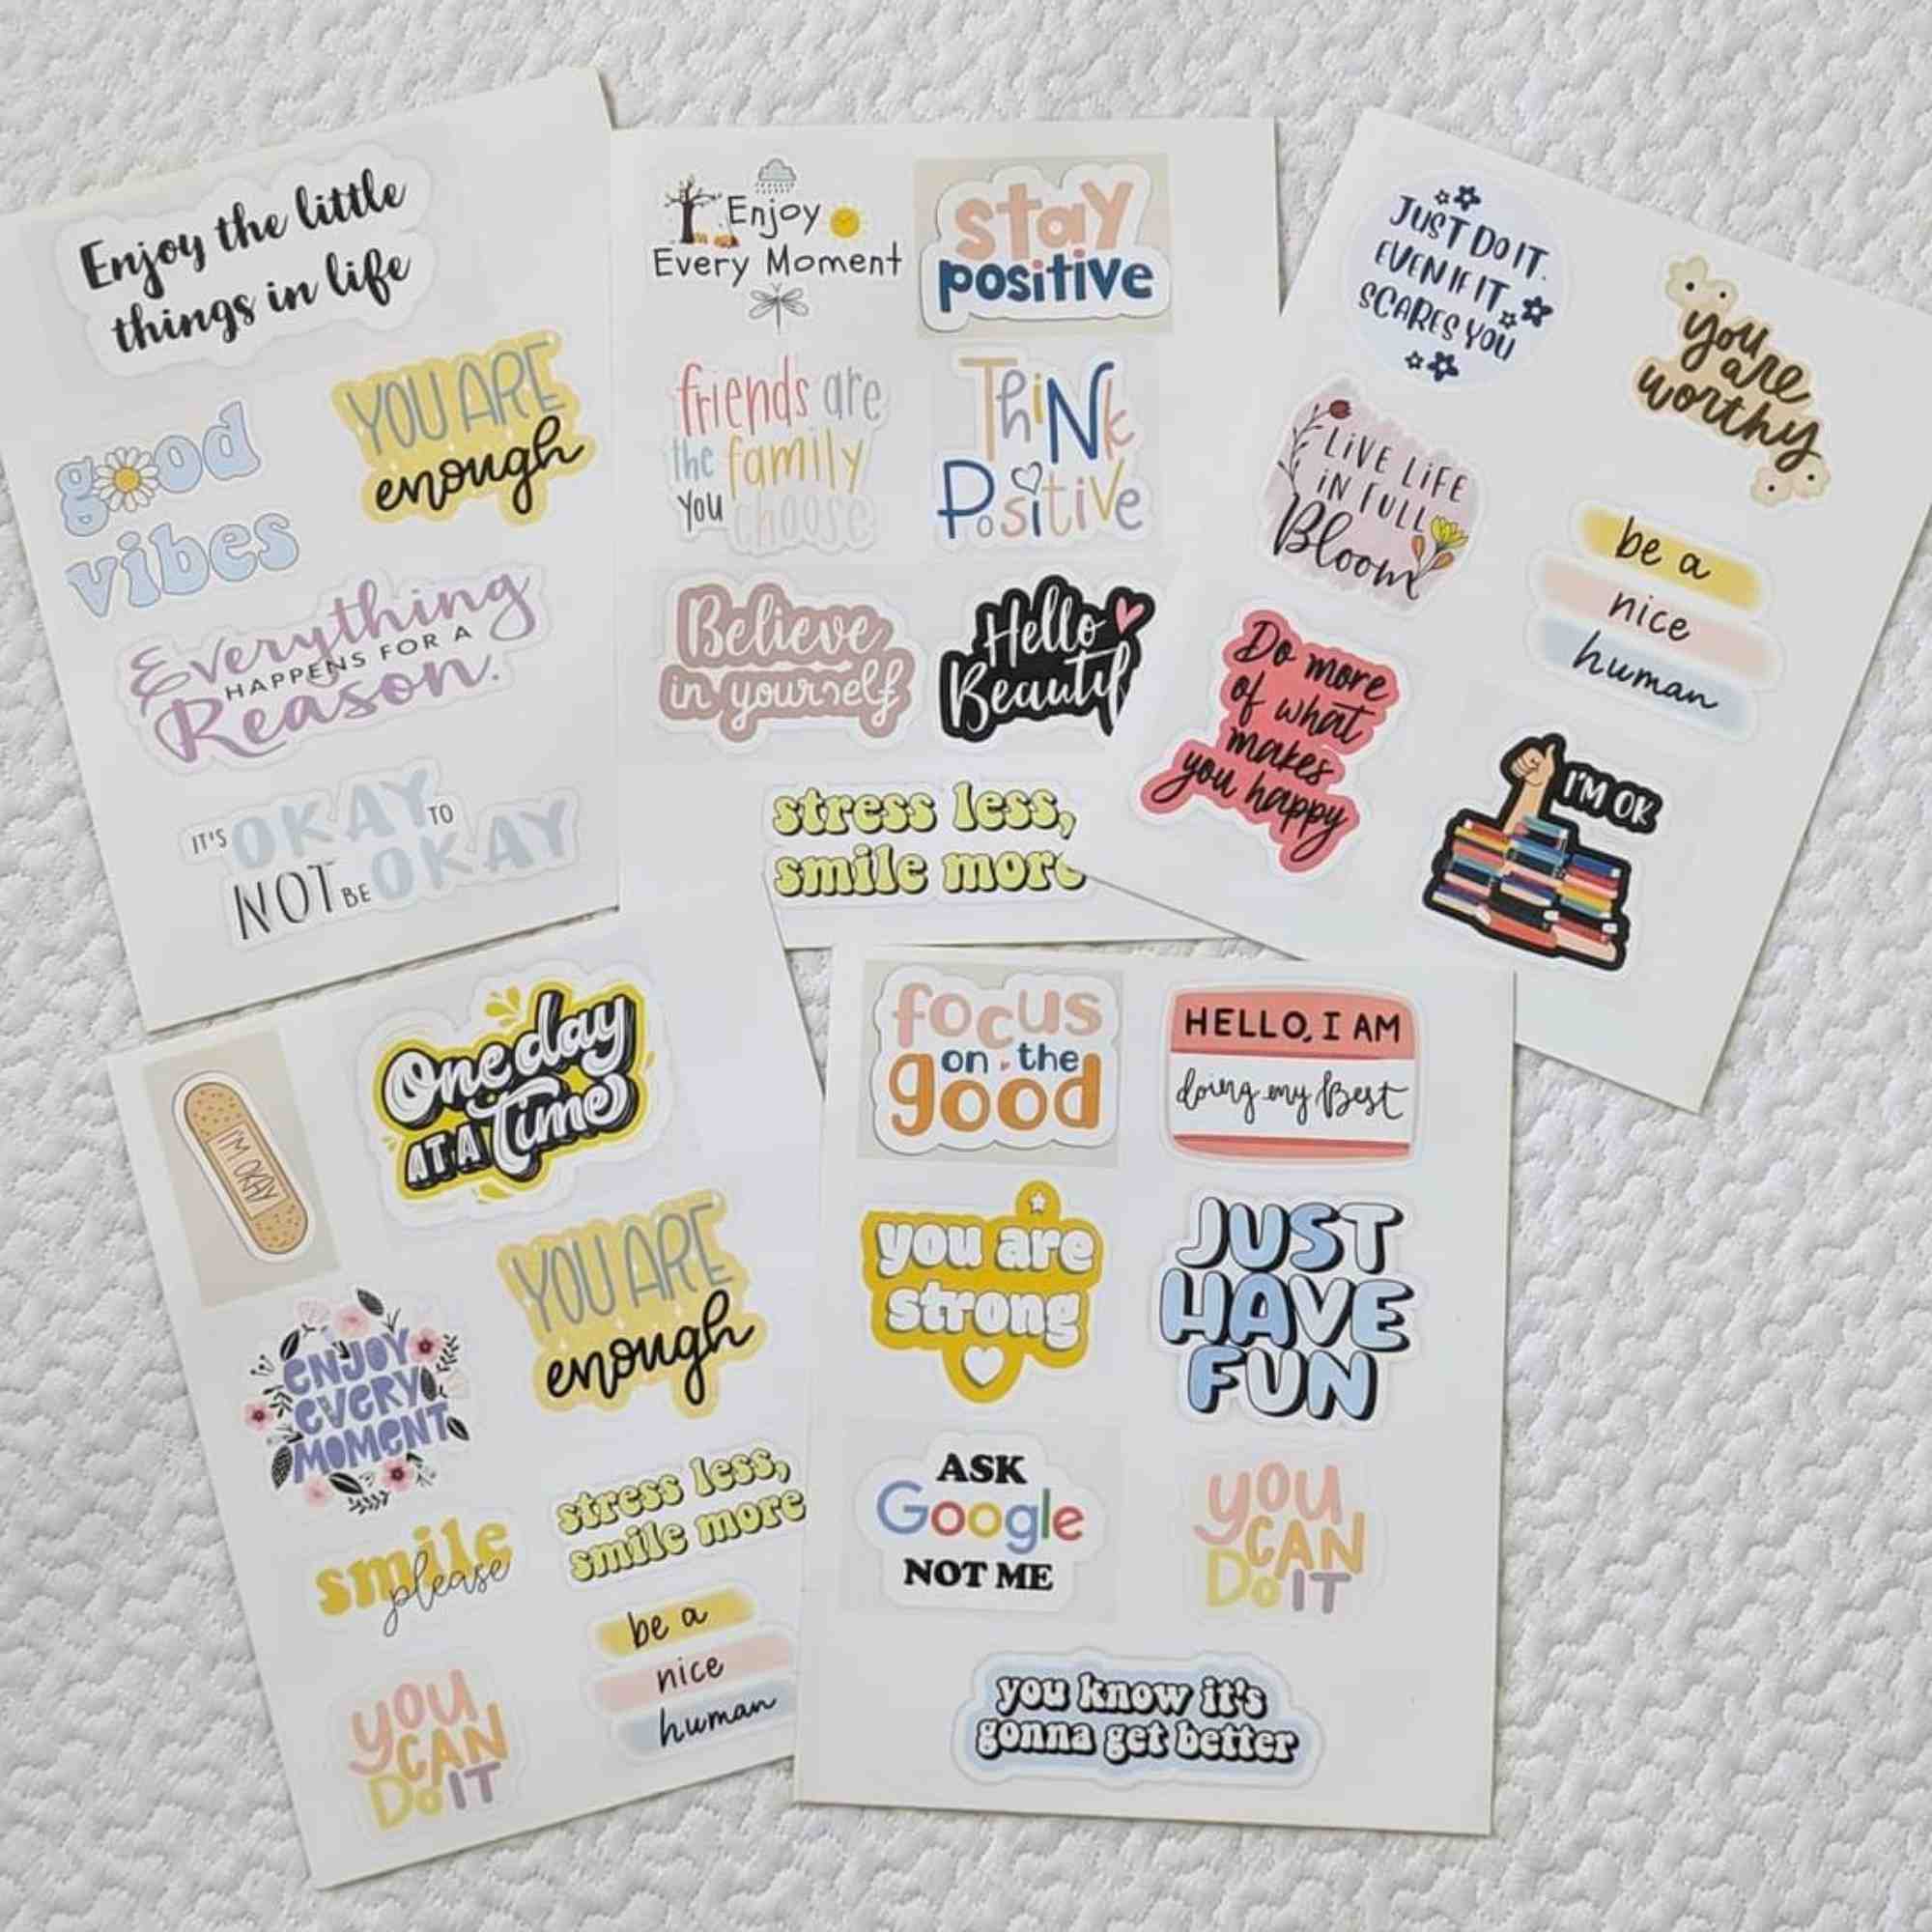 Enjoy the little
things in life
good
vibes
YOU ARE
enough
Everything
HAPPENS FOR A
Reason.
IT'S OKAY TO
NOT BE OKAY
Enjoy
Every Moment
stay
positive
friends are
the family
you choose
Think
Positive
Believe
in yourself
Hello
stress less,
smile more
JUST DO IT.
EVEN IF IT
SCARES YOU
you
are
worthy
LIVE LIFE
IN FULL
Bloom
be a
nice
human
Do more
of what
makes
you happy
I'M OK
I'M OKAY
One day
AT A Time
YOU ARE
enough
ENJOY
EVERY
MOMENT
stress less,
smile more
smile
please
be a
nice
human
you
CAN
Do IT
focus
on the
good
HELLO, I AM
doing my Best
you are
strong
JUST
HAVE
FUN
ASK
Google
NOT ME
you
CAN
Do IT
you know it's
gonna get better